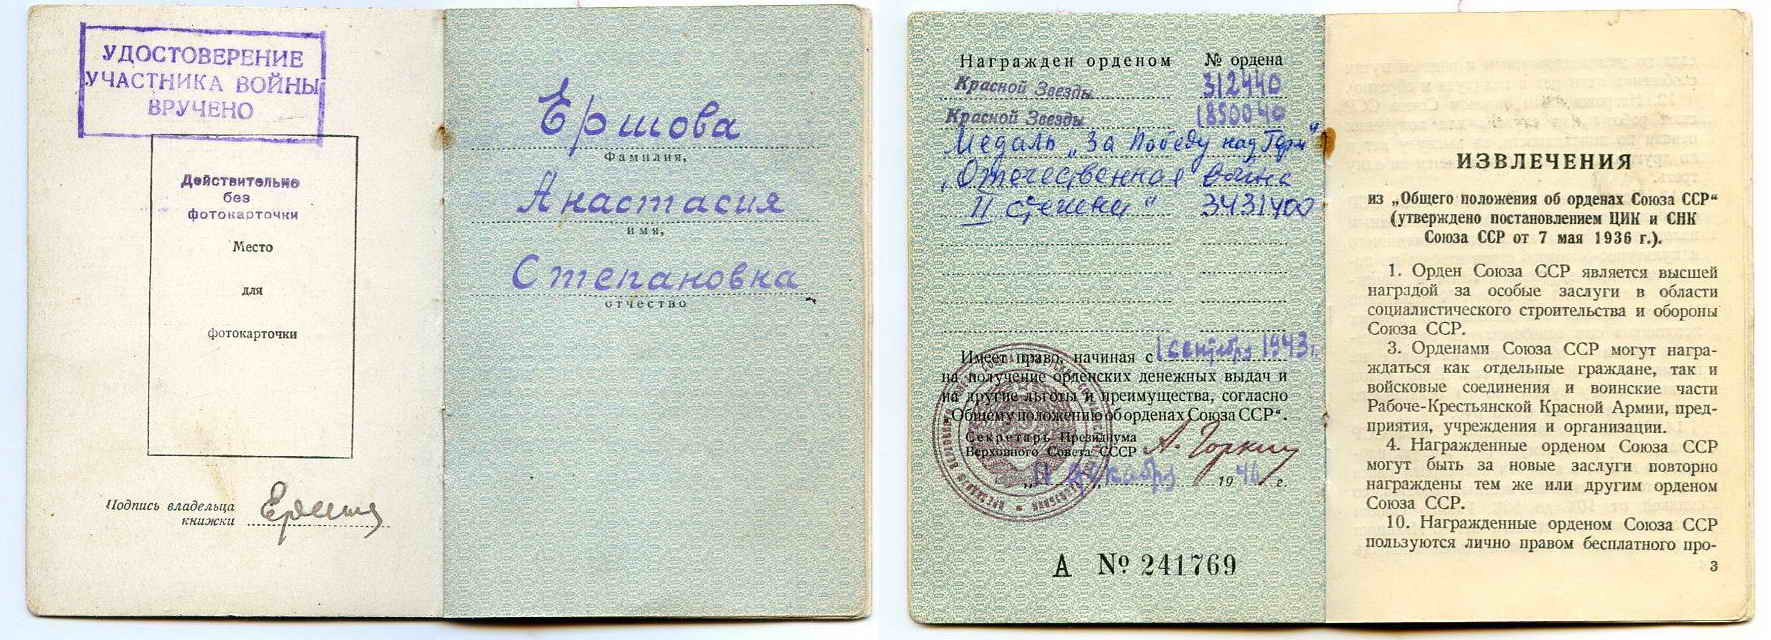 УДОСТОВЕРЕНИЕ
УЧАСТНИКА ВОЙНЫ
ВРУЧЕНО
Действительно
без
фотокарточки
Место
для
фотокарточки
Подпись владельца
книжки
Ершова
Фамилия,
Анастасия
имя,
Степановна
отчество
Награжден орденом № ордена
Красной Звезды 312440
Красной Звезды 1850040
Медаль „За Победу над Герм"
„Отечественная война
II степени" 3431400
Имеет право, начиная с 1 сентября 1943 г.
на получение орденских денежных выдач и
на другие льготы и преимущества, согласно
„Общему положению об орденах Союза ССР“.
Секретарь Президиума
Верховного Совета СССР А. Горкин
„11" декабря 1946 г.
А № 241769
ИЗВЛЕЧЕНИЯ
из „Общего положения об орденах Союза ССР“
(утверждено постановлением ЦИК и СНК
Союза ССР от 7 мая 1936 г.).
1. Орден Союза ССР является высшей
наградой за особые заслуги в области
социалистического строительства и обороны
Союза ССР.
3. Орденами Союза ССР могут награ-
ждаться как отдельные граждане, так и
войсковые соединения и воинские части
Рабоче-Крестьянской Красной Армии, пред-
приятия, учреждения и организации.
4. Награжденные орденом Союза ССР
могут быть за новые заслуги повторно
награждены тем же или другим орденом
Союза ССР.
10. Награжденные орденом Союза ССР
пользуются лично правом бесплатного про-
3